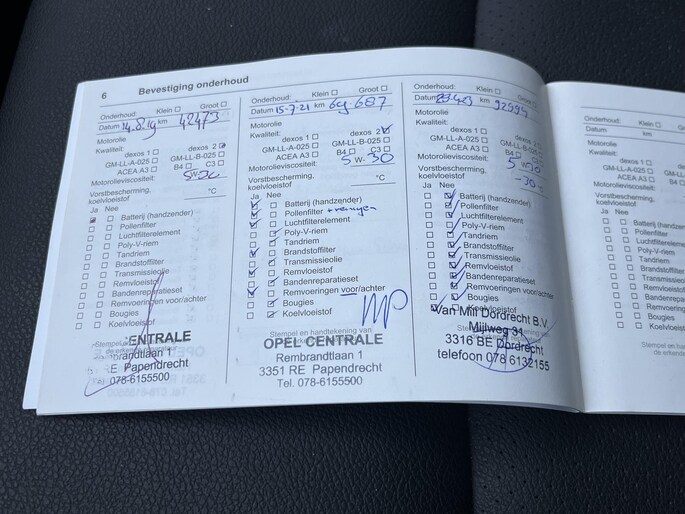 6 Bevestiging onderhoud
Onderhoud: Klein Groot
Datum 14.8.19 km 42473
Motorolie
Kwaliteit:
dexos 1 dexos 2
GM-LL-A-025 GM-LL-B-025
ACEA A3 B4 C3
Motorolieviscositeit:
5W30
Vorstbescherming, °C
koelvloeistof
Ja Nee
Batterij (handzender)
Pollenfilter
Luchtfilterelement
Poly-V-riem
Tandriem
Brandstoffilter
Transmissieolie
Remvloeistof
Bandenreparatieset
Remvoeringen voor/achter
Bougies
Koelvloeistof
ENTRALE
brandtlaan 1
RE Papendrecht
078-6155500
Onderhoud: Klein Groot
Datum 15-7-21 km 69-687
Motorolie
Kwaliteit:
dexos 1 dexos 2
GM-LL-A-025 GM-LL-B-025
ACEA A3 B4 C3
Motorolieviscositeit: 5 W- 30
Vorstbescherming, °C
koelvloeistof
Ja Nee
Batterij (handzender)
Pollenfilter
Luchtfilterelement
Poly-V-riem
Tandriem
Brandstoffilter
Transmissieolie
Remvloeistof
Bandenreparatieset
Remvoeringen voor/achter
Bougies
Koelvloeistof
Stempel en handtekening van
OPEL CENTRALE
Rembrandtlaan 1
3351 RE Papendrecht
Tel. 078-6155500
Onderhoud: Klein Groot
Datum km 92994
Motorolie
Kwaliteit:
dexos 1 dexos 2
GM-LL-A-025 GM-LL-B-025
ACEA A3 B4 C3
Motorolieviscositeit: 5 W 30
Vorstbescherming,
koelvloeistof -30 °C
Ja Nee
Batterij (handzender)
Pollenfilter
Luchtfilterelement
Poly-V-riem
Tandriem
Brandstoffilter
Transmissieolie
Remvloeistof
Bandenreparatieset
Remvoeringen voor/achter
Bougies
Koelvloeistof
Van Mill Dordrecht B.V.
Mijlweg 31
3316 BE Dordrecht
telefoon 078 6132155
Onderhoud: Klein
Datum km
Motorolie
Kwaliteit:
dexos 1
GM-LL-A-025
ACEA A3
Motorolieviscositeit:
Vorstbescherming,
koelvloeistof
Ja Nee
Batterij (handzender)
Pollenfilter
Luchtfilterelement
Poly-V-riem
Tandriem
Brandstoffilter
Transmissieolie
Remvloeistof
Bandenrepa
Remvoering
Bougies
Koelvloeistof
Stempel en h
de erkende